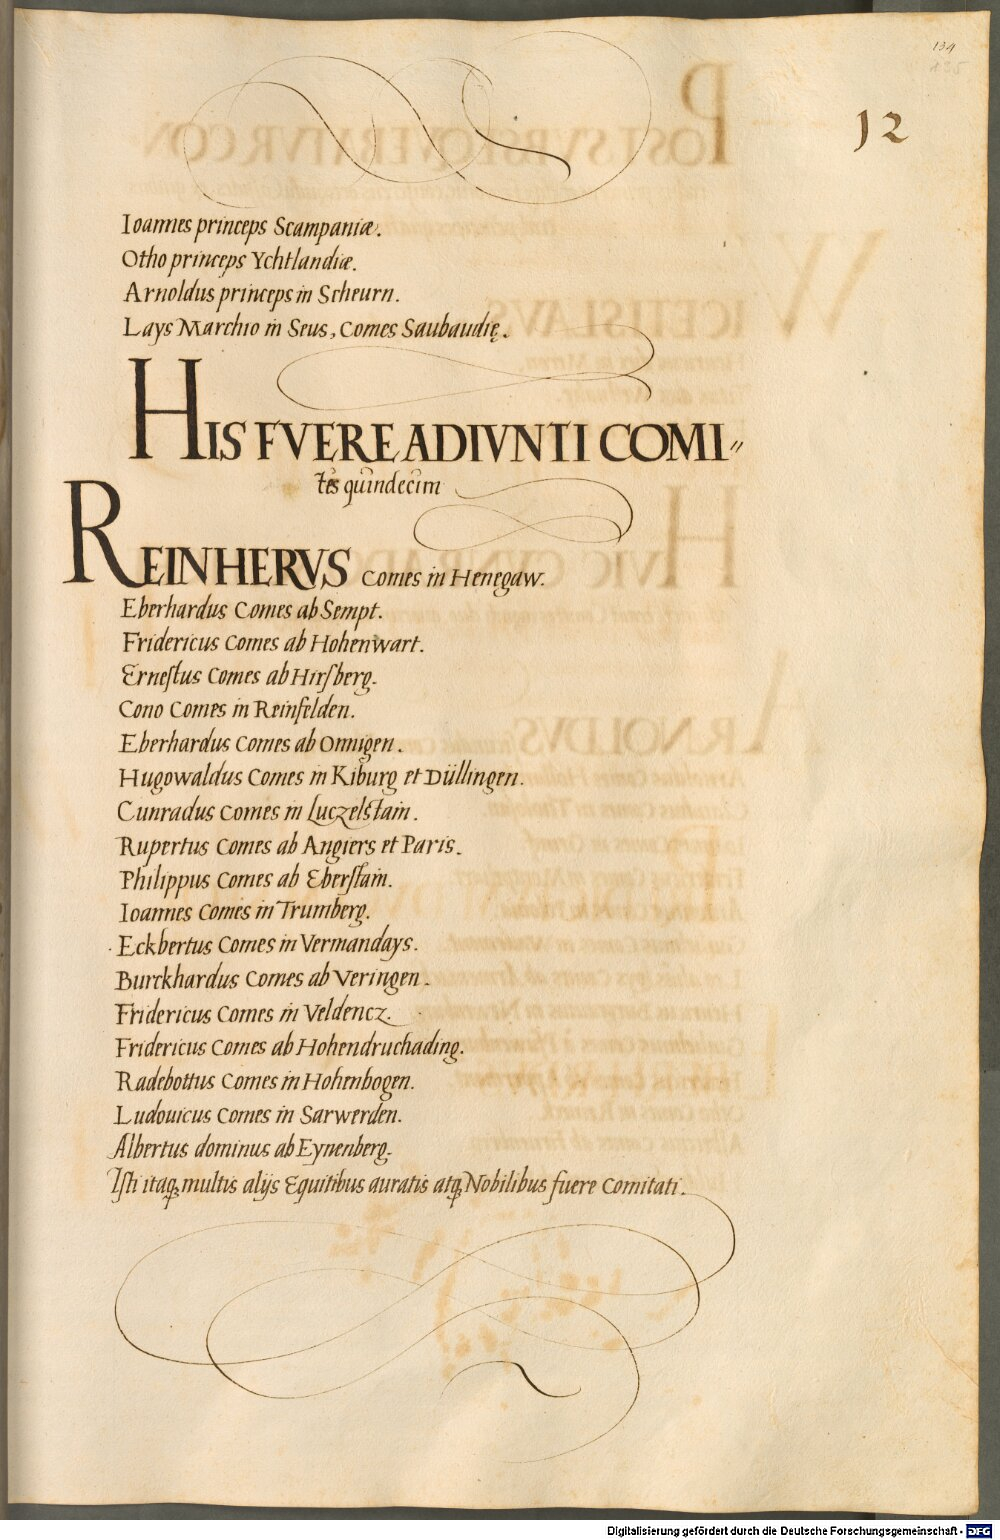 134
135
12
Ioannes princeps Scampaniæ.
Otho princeps Ychtlandiæ.
Arnoldus princeps in Scheurn.
Lays Marchio in Seus, Comes Saubaudię.
HIS FVERE ADIVNTI COMI〃
tes quindecim
REINHERVS Comes in Henegaw.
Eberhardus Comes ab Sempt.
Fridericus Comes ab Hohenwart.
Ernestus Comes ab Hirsberg.
Cono Comes in Reinfelden.
Eberhardus Comes ab Onnigen.
Hugowaldus Comes in Kiburg et Düllingen.
Cunradus Comes in Luczelstain.
Rupertus Comes ab Angiers et Paris.
Philippus Comes ab Eberstain.
Ioannes Comes in Trumberg.
Eckbertus Comes in Vermandays.
Burckhardus Comes ab Veringen.
Fridericus Comes in Veldencz.
Fridericus Comes ab Hohendruchading.
Radebottus Comes in Hohenbogen.
Ludouicus Comes in Sarwerden.
Albertus dominus ab Eynenberg.
Isti itaq; multis alijs Equitibus auratis atq; Nobilibus fuere Comitati.
Digitalisierung gefördert durch die Deutsche Forschungsgemeinschaft - DFG